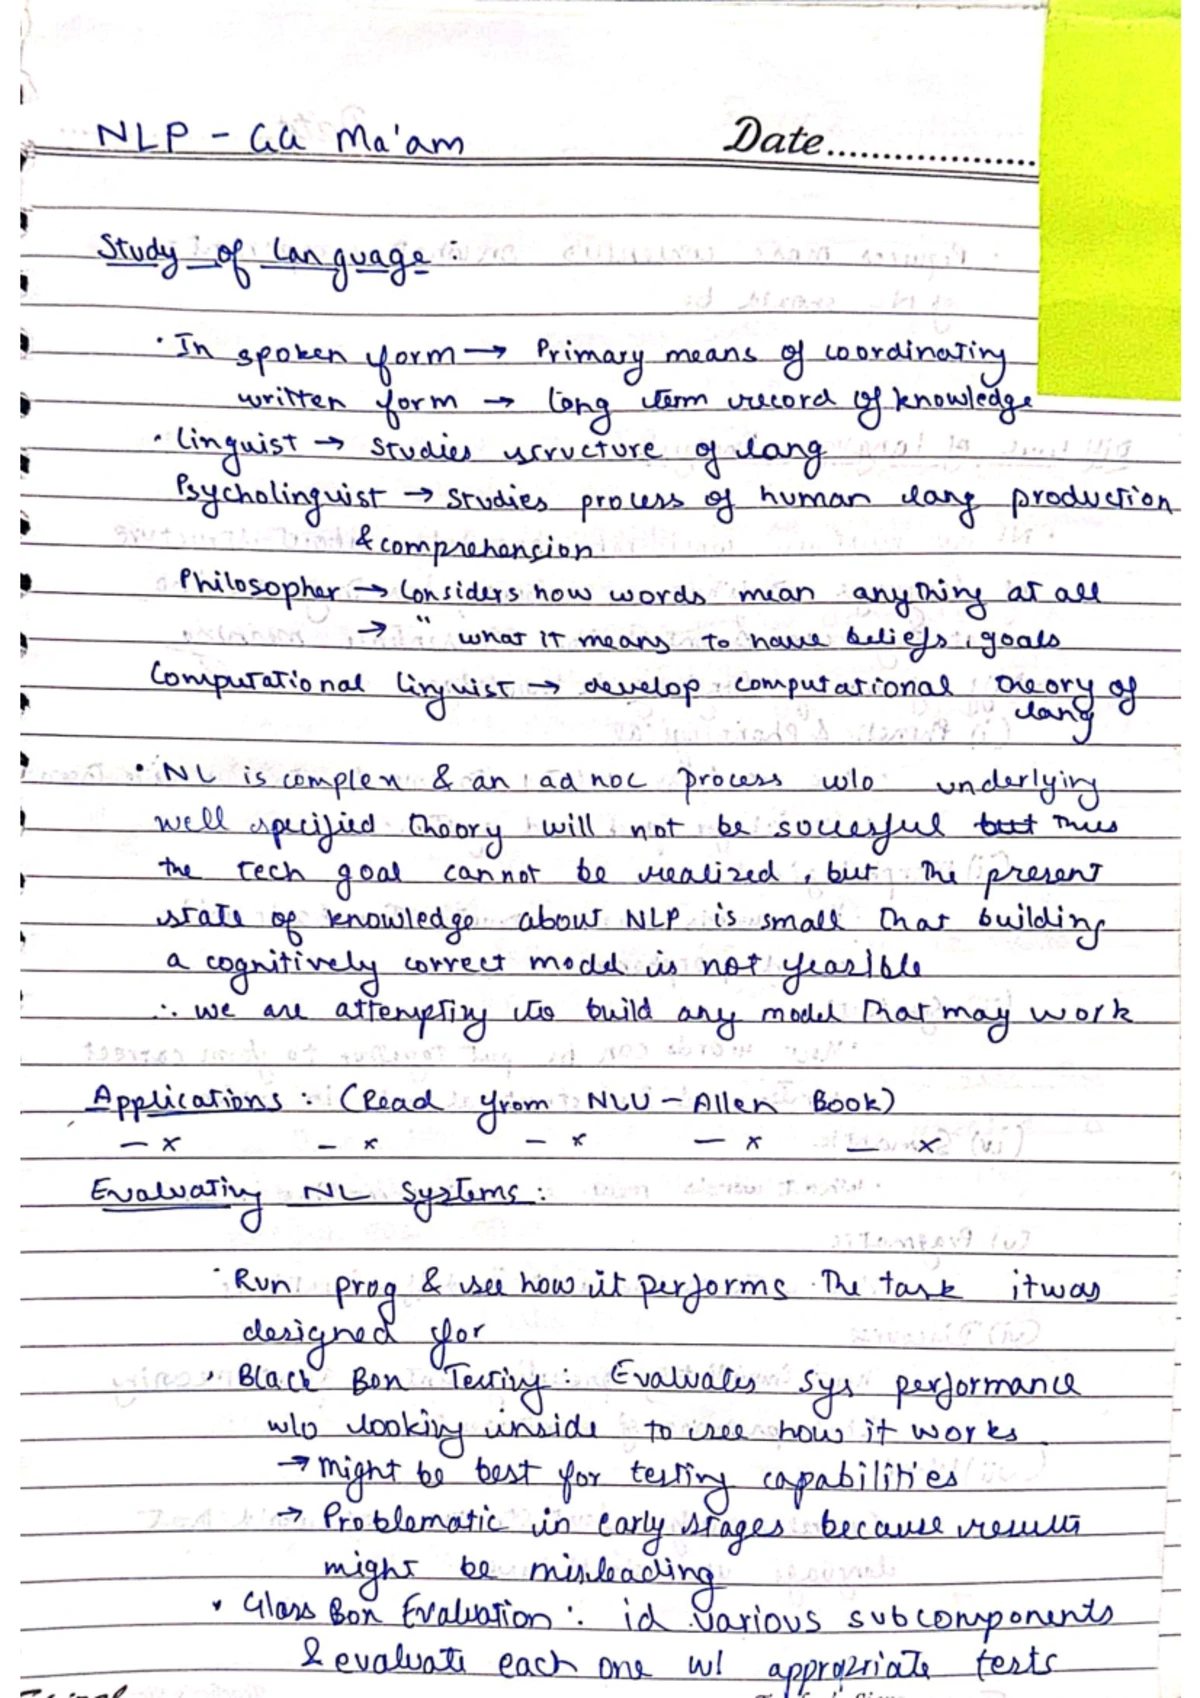 NLP - GG Ma'am Date....................
Study of Language :
· In spoken form → Primary means of coordinating
written form → long term record of knowledge
· linguist → Studies structure of lang
Psycholinguist → Studies process of human lang production
& comprehension
Philosopher → Considers how words mean anything at all
→ " what it means to have beliefs, goals
Computational linguist → develop computational theory of
lang
· NL is complex & an ad hoc process w/o underlying
well specified theory will not be succesful but thus
the tech goal cannot be realized, but the present
state of knowledge about NLP is small that building
a cognitively correct model is not feasible
∴ we are attempting to build any model that may work
Applications : (Read from NLU - Allen Book)
— x — x — x — x — x
Evaluating NL Systems :
· Run prog & see how it performs the task it was
designed for
· Black Box Testing : Evaluates sys performance
w/o looking inside to see how it works
→ might be best for testing capabilities
→ Problematic in early stages because results
might be misleading
· Glass Box Evaluation : id various subcomponents
& evaluate each one w/ appropriate tests